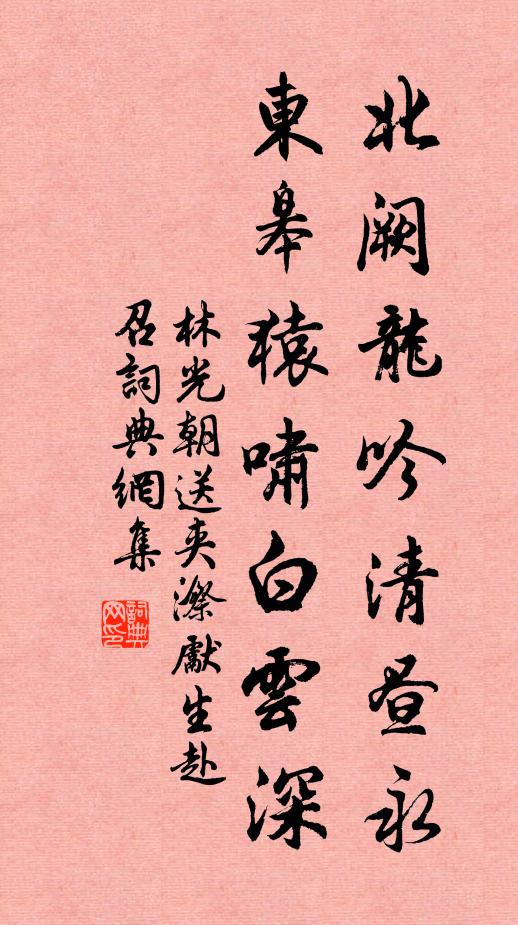 北闕龍吟清晝永
東皋猿嘯白雲深
林光朝送夾漈獻生赴
召詞典網集
詞典
網印